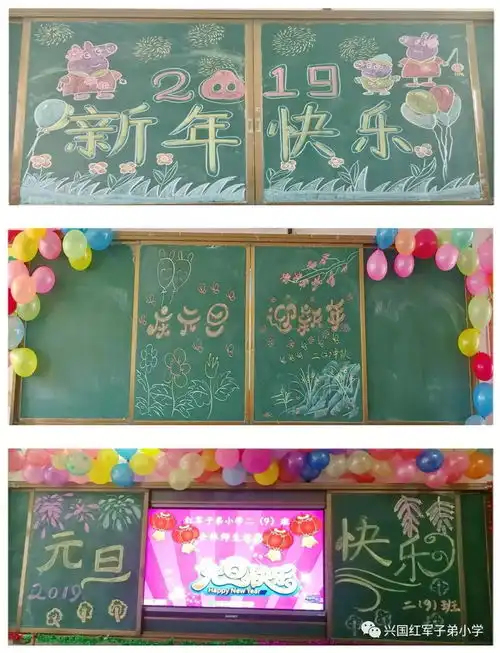 2019
新年快乐
庆元旦
迎新年
二(9)中队
元旦
2019
红军子弟小学二(9)班
全体师生祝您
元旦快乐
Happy New Year
快乐
二(9)班
兴国红军子弟小学